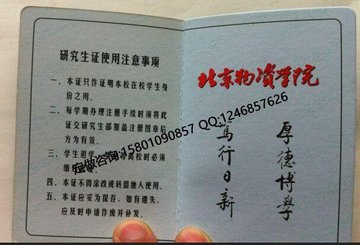 研究生证使用注意事项
一、本证只作证明本校在校学生身
份之用。
二、每学期办理注册手续时须将此
证交研究生部加盖注册图章后
方为有效。
三、学生退学、
四、本证不得涂改或转借他人使用。
五、本证应妥为保存，如有遗失，
应及时申请作废并补发。
北京物资学院
厚德博学
笃行日新
定做咨询:15801090857 QQ:1246857626